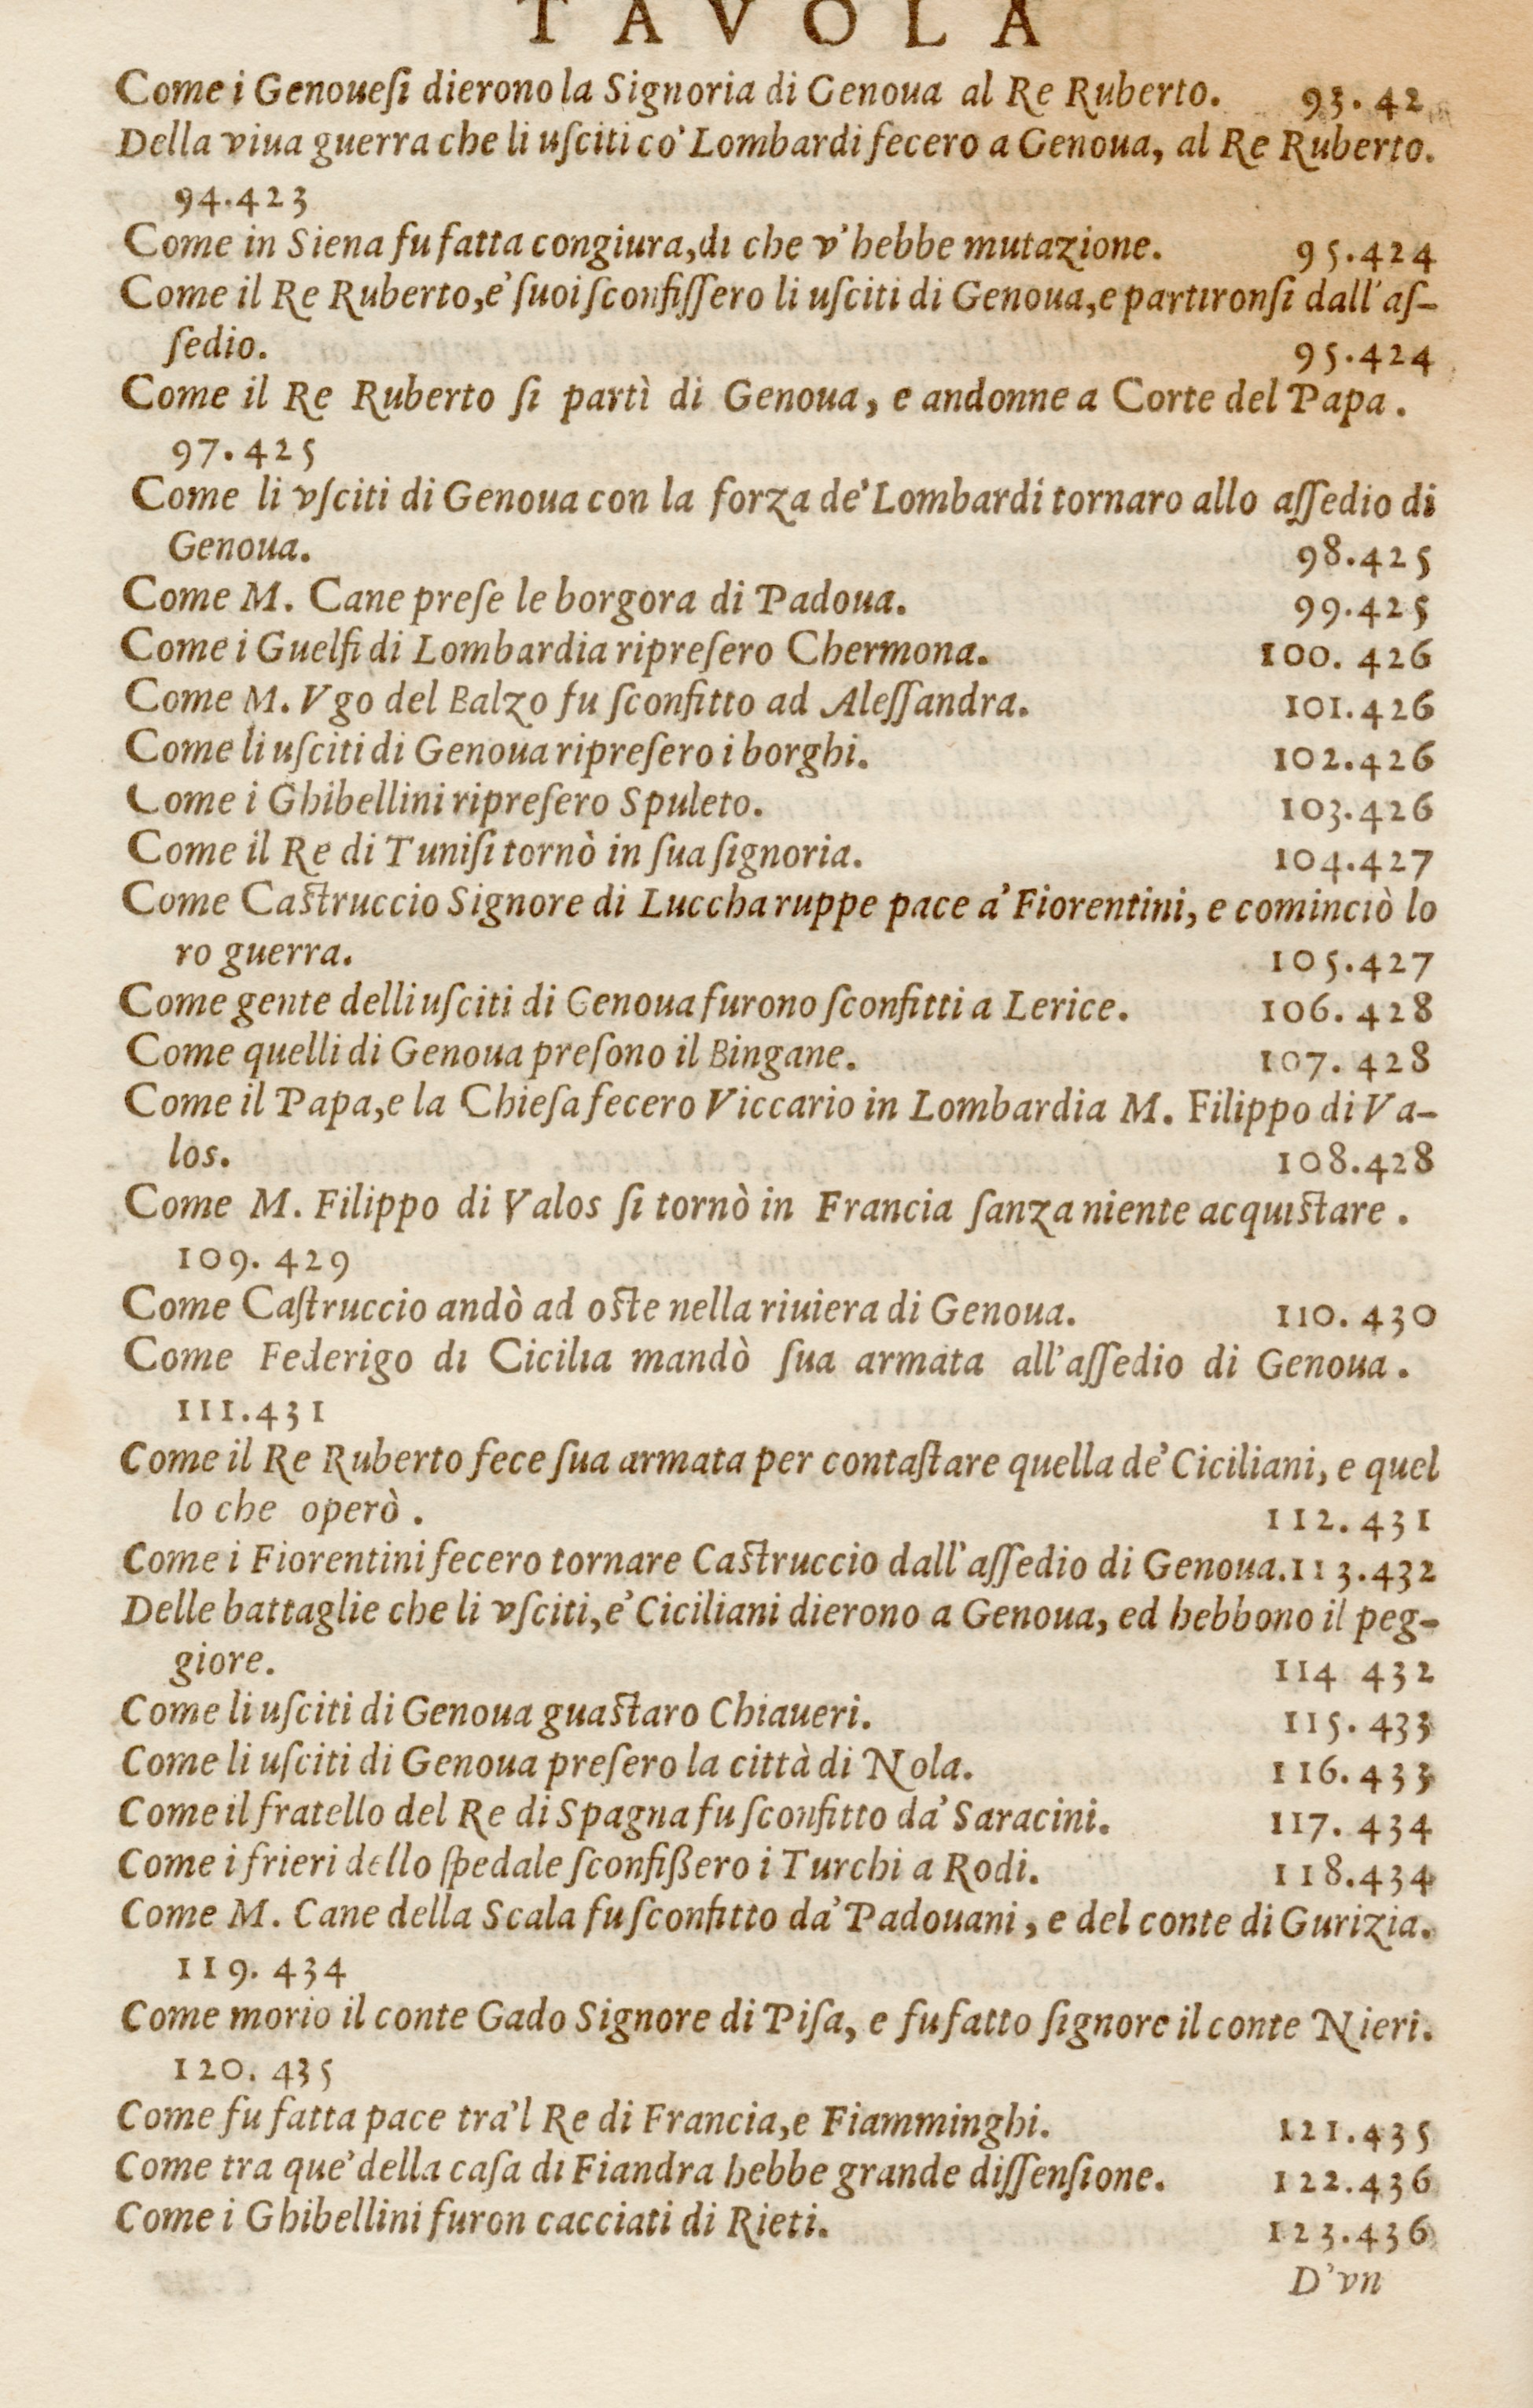 TAVOLA
Come i Genoueſi dierono la Signoria di Genoua al Re Ruberto. 93. 42
Della viua guerra che li uſciti co' Lombardi fecero a Genoua, al Re Ruberto.
94.423
Come in Siena fu fatta congiura, di che v'hebbe mutazione. 95.424
Come il Re Ruberto, e' ſuoi ſconfiſſero li uſciti di Genoua, e partironſi dall'aſ-
ſedio. 95.424
Come il Re Ruberto ſi partì di Genoua, e andonne a Corte del Papa.
97.425
Come li vſciti di Genoua con la forza de' Lombardi tornaro allo aſſedio di
Genoua. 98.425
Come M. Cane preſe le borgora di Padoua. 99.425
Come i Guelfi di Lombardia ripreſero Chermona. 100. 426
Come M. Vgo del Balzo fu ſconfitto ad Aleſſandra. 101.426
Come li uſciti di Genoua ripreſero i borghi. 102.426
Come i Ghibellini ripreſero Spuleto. 103.426
Come il Re di Tuniſi tornò in ſua ſignoria. 104.427
Come Caſtruccio Signore di Luccha ruppe pace a' Fiorentini, e cominciò lo
ro guerra. 105.427
Come gente delli uſciti di Genoua furono ſconfitti a Lerice. 106. 428
Come quelli di Genoua preſono il Bingane. 107. 428
Come il Papa, e la Chieſa fecero Viccario in Lombardia M. Filippo di Va-
los. 108.428
Come M. Filippo di Valos ſi tornò in Francia ſanza niente acquiſtare.
109. 429
Come Caſtruccio andò ad oſte nella riuiera di Genoua. 110. 430
Come Federigo di Cicilia mandò ſua armata all'aſſedio di Genoua.
111.431
Come il Re Ruberto fece ſua armata per contaſtare quella de' Ciciliani, e quel
lo che operò. 112. 431
Come i Fiorentini fecero tornare Caſtruccio dall'aſſedio di Genoua. 113.432
Delle battaglie che li vſciti, e' Ciciliani dierono a Genoua, ed hebbono il peg-
giore. 114 432
Come li uſciti di Genoua guaſtaro Chiaueri. 115. 433
Come li uſciti di Genoua preſero la città di Nola. 116. 433
Come il fratello del Re di Spagna fu ſconfitto da' Saracini. 117. 434
Come i frieri dello ſpedale ſconfißero i Turchi a Rodi. 118.434
Come M. Cane della Scala fu ſconfitto da' Padouani, e del conte di Gurizia.
119. 434
Come morio il conte Gado Signore di Piſa, e fu fatto ſignore il conte Nieri.
120. 435
Come fu fatta pace tra'l Re di Francia, e Fiamminghi. 121.435
Come tra que' della caſa di Fiandra hebbe grande diſſenſione. 122.436
Come i Ghibellini furon cacciati di Rieti. 123.436
D'vn